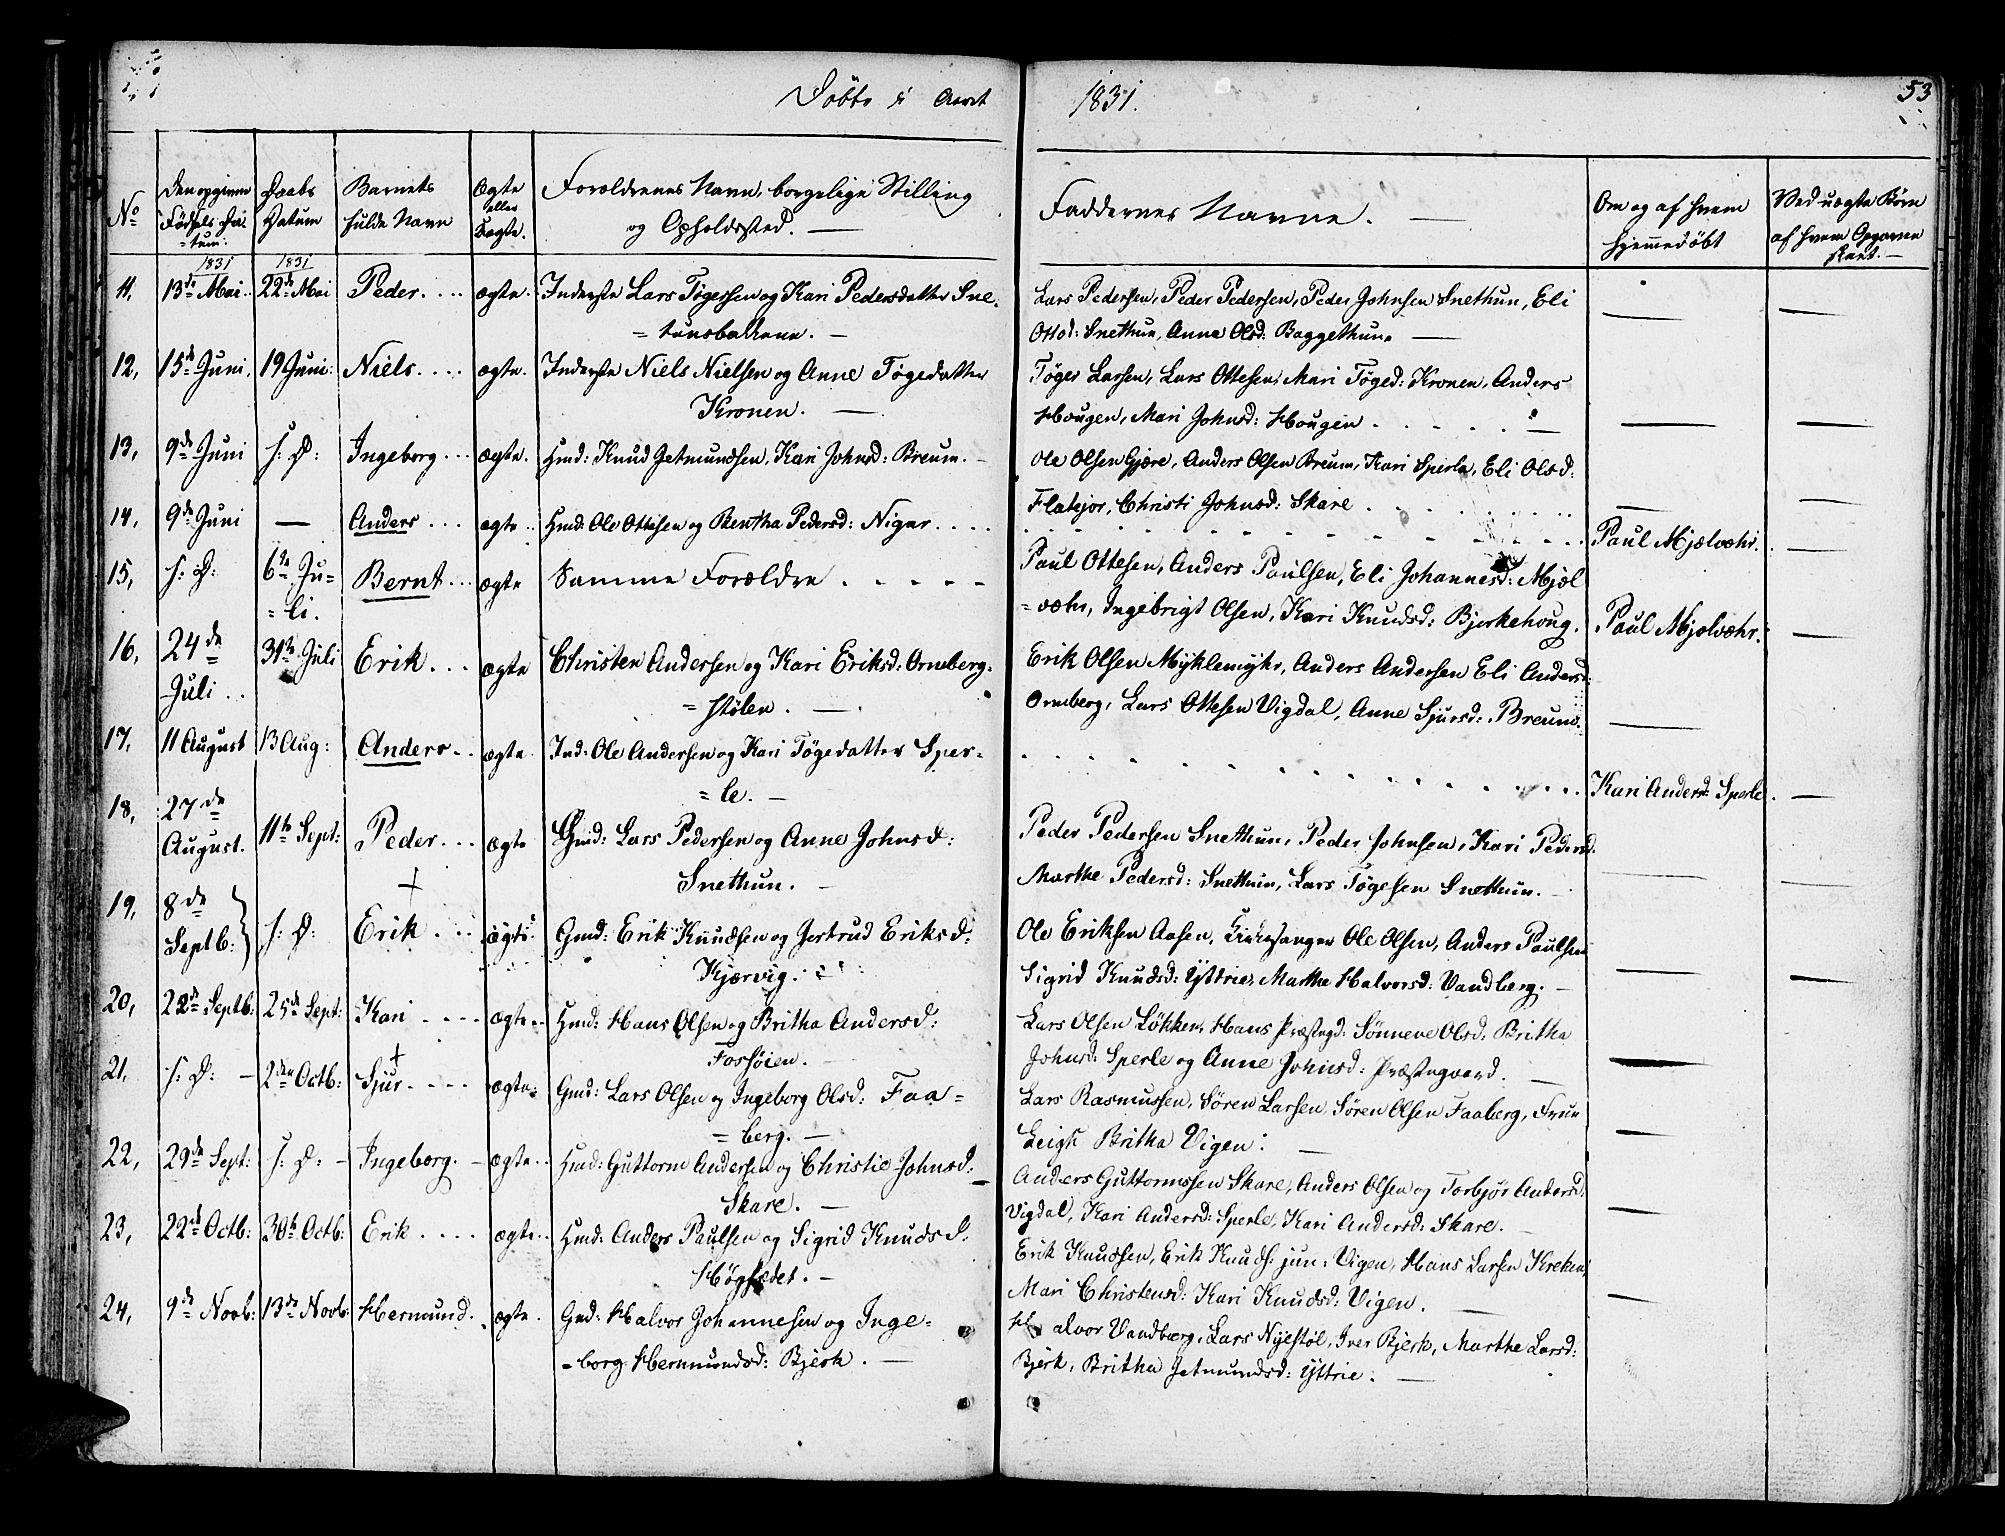 Døbte i Aaret 1831. 53
No Den opgivne Fødsels Datum. Daabs Datum Barnets fulde Navn Ægte eller Uægte. Forældrenes Navn, borgelige Stilling og Opholdssted. — Faddernes Navne. — Om og af hvem hjemmedøbt Ved uægte Børn af hvem Opgaven skeet. —
1831 1831
11, 13de Mai. 22de Mai Peder. . . . ægte. Inderste Lars Tøgersen og Kari Pedersdatter Sne- Lars Pedersen, Peder Pedersen, Peder Johnsen Snethun, Eli
= tunsbakkene. — Ottod: Snethun, Anne Olsd: Baggethun. —
12, 15de Juni. 19 Juni: Niels. . . . ægte. Inderste Niels Nielsen og Anne Tøgedatter Tøger Larsen, Lars Ottesen, Mari Tøged: Kronen, Anders
Kronen. — Hougen, Mari Johnsd: Hougen . . . . .
13, 9de Juni s: D: Ingeborg . . . ægte. Hmd: Knud Jetmundsen, Kari Johnsd: Breum. — Ole Olsen Gjøre, Anders Olsen Breum, Kari Sperle, Eli Olsd:
Flatejor, Christi Johnsd: Skare . . . .
14, 9de Juni — Anders . . . ægte . . Hmd: Ole Ottesen og Bentha Pedersd: Nigar . . . . Paul Mjelvæhr. —
15, s: D: 6te Ju- Bernt . . . ægte Samme Forældre . . . . . Paul Ottesen, Anders Paulsen, Eli Johannesd: Mjøl
= li. = væhr, Ingebrigt Olsen, Kari Knudsd: Bjerkehoug. Paul Mjelvæhr. —
16, 24de 31te Juli Erik. . . ægte Christen Andersen og Kari Eriksd: Ornberg- Erik Olsen Myklemyhr, Anders Andersen Eli Andersd:
Juli . . = støler. — Ornberg, Lars Ottesen Vigdal, Anne Sjursd: Breum.
17, 11 August 13 Aug: Anders . . ægte. Ind: Ole Andersen og Kari Tøgedatter Sper-
= le. — Kari Andersd: Sperle. —
18, 27de 11te Sept: Peder. . . ægte Gmd: Lars Pedersen og Anne Johnsd: Peder Pedersen Snethun, Peder Johnsen, Kari Pedersd:
August. Snethun. — Marthe Pedersd: Snethun, Lars Tøgesen Snethun. —
19, 8de s: D: Erik . . . ægte. Gmd: Erik Knudsen og Jertrud Eriksd: Ole Eriksen Aasen, Kirkesanger Ole Olsen, Anders Paulsen
Septb: Kjærvig. Sigrid Knudsd: Yttrie, Marthe Halvorsd: Vandberg. —
20, 22de Septb: 25de Sept: Kari . . . . ægte. . Hmd: Hans Olsen og Britha Andersd: Lars Olsen Løkken, Hans Præstegd: Sønneve Olsd: Britha
Fossøien. — Johnsd: Sperle og Anne Johnsd: Præstegaard. —
21, s: D: — 2den Octb: Sjur . . . . ægte. Gmd: Lars Olsen og Ingeborg Olsd: Faa= Lars Rasmussen, Søren Larsen, Søren Olsen Faaberg, Frue
= berg. — Britha Vigen: —
22, 29de Sept: s: D: — Ingeborg. — ægte. . Hmd: Guttorm Andersen og Christie Johnsd: Anders Guttormsen Skare, Anders Olsen og Torbjør Andersd:
Skare. — Vigdal, Kari Andersd: Sperle, Kari Andersd: Skare. —
23, 22de Octb: 30te Octb: Erik . . . . ægte. . Hmd: Anders Paulsen og Sigrid Knudsd: Erik Knudsen, Erik Knuds: jun: Vigen, Hans Larsen Kreken,
Høgsædet. — Mari Christensd: Kari Knudsd: Vigen. —
24, 9de Novb: 13de Novb: Hermund. . ægte. Gmd: Halvor Johannesen og Inge- Halvor Vandberg, Lars Nyestøl, Iver Bjerk, Marthe Larsd:
= borg Hermundsd: Bjerk. — Bjerk, Britha Jetmundsd: Yttrie. —